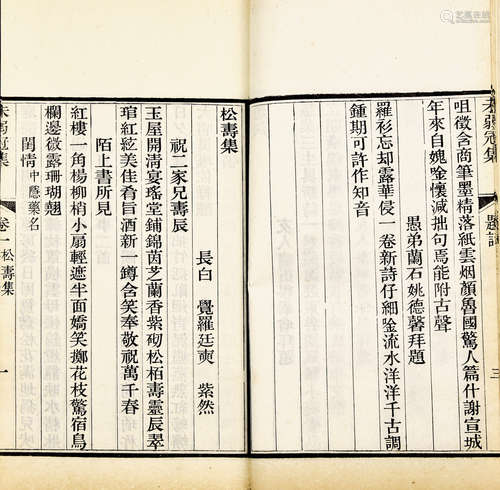 咀徵含商筆墨精落紙雲烟顏魯國驚人篇什謝宣城
年來自媿唫懷減拙句焉能附古聲
愚弟蘭石姚德馨拜題
羅衫忘却露華侵一卷新詩仔細唫流水洋洋千古調
鍾期可許作知音
未弱冠集
題詞
三
松壽集
長白 覺羅廷奭 紫然
祝二家兄壽辰
玉屋開清宴瑤堂鋪錦茵芝蘭香紫砌松栢壽靈辰翠
琯紅絃美佳肴旨酒新一罇含笑奉敬祝萬千春
陌上書所見
紅樓一角楊柳梢小扇輕遮半面嬌笑擲花枝驚宿鳥
欄邊微露珊瑚翹
閨情 中隱藥名
未弱冠集
卷一 松壽集
一